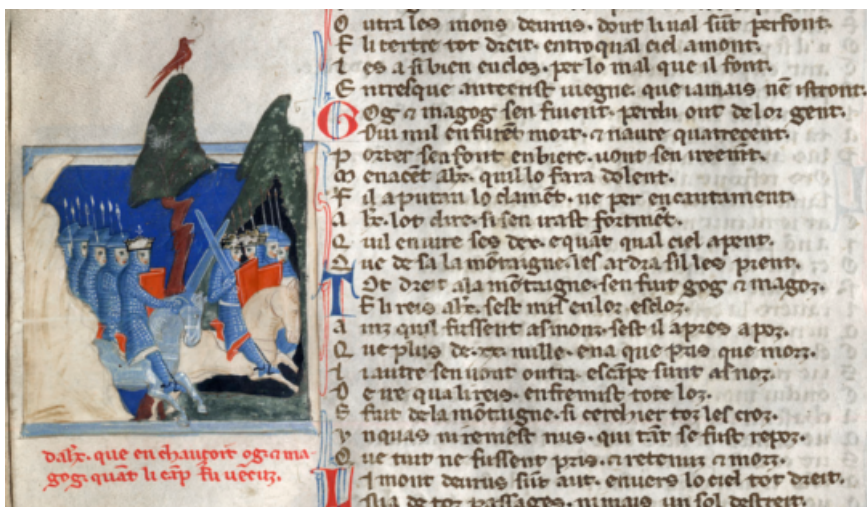 O utra les mons deurus. dont li ual sunt perfont.
E li tertre tot dreit. entro qual ciel amont.
L es a si bien enclos. per lo mal que il font.
E ntresque antecrist uiegne. que iamais nen istront.
G og & magog sen fuient. perdu ont de lor gent.
D ui mil en furent mort. & naure quatrecent.
P orter se a font en biere. uont sen
M enacent alx. quil lo fara dolent.
F il a putan lo clament. ne per encantament.
A lx. lot dire. si sen irast fortment.
Q uil en iure ses dex. e quant qual ciel apent.
Q ue de sa la montaigne. les ardra sil les prent.
T ot dreit a la montaigne. sen fuit gog & magoz.
E li reis alx. sest mis en lor escloz.
A inz quil fussent as monz. sest il apres apoz.
Q ue plus de .xx. mille. en a que pris que morz.
L i autre sen uont outra. escanpe sunt al noz.
D e ne qua li reis. enfremist tote loz.
S fait de la montaigne. si cerchier toz les croz.
V nquas ni remest nus. qui tant se fust repoz.
Q ue tuit ne fussent pris. & retenuz & morz.
L i mont deurus sunt aut. enuers lo ciel tot dreit.
sua de toz passages. ni mais un sol destreit.
dalx. que en chauçoit og. & ma-
gog. quant li camp fu uencuz.